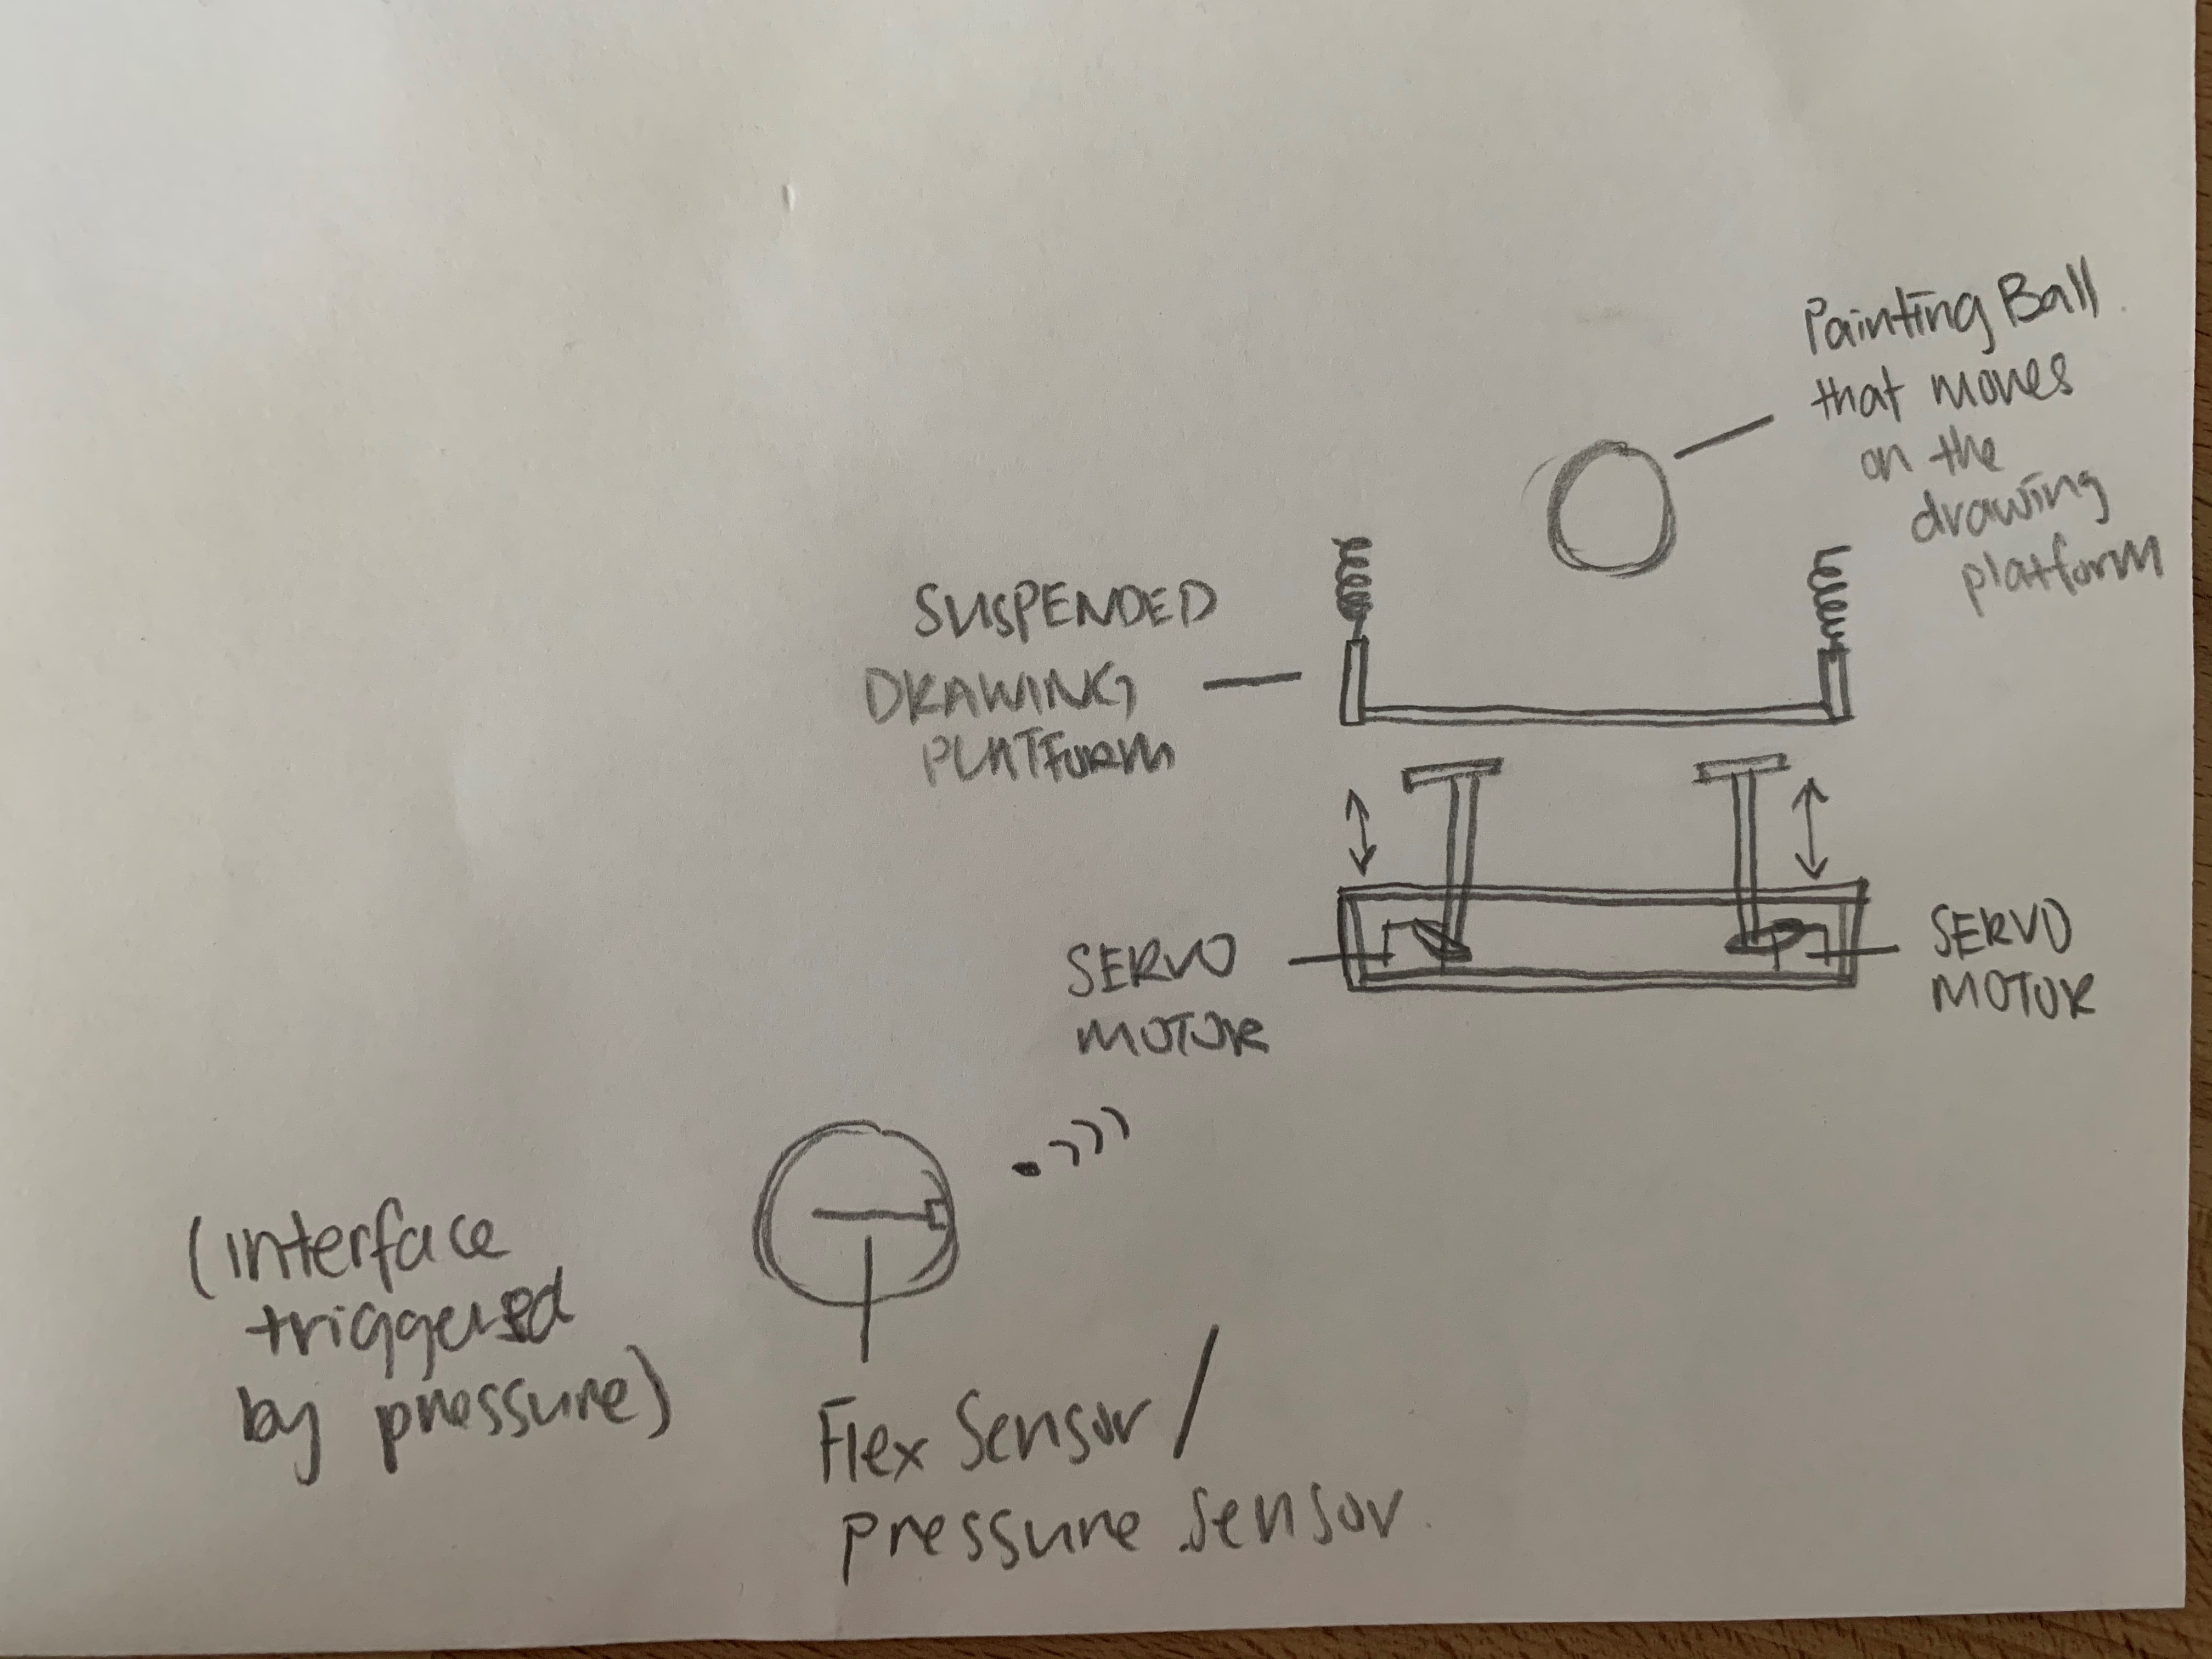 Painting Ball
that moves
on the
drawing
platform
SUSPENDED
DRAWING
PLATFORM
SERVO
MOTOR
SERVO
MOTOR
(interface
triggered
by pressure)
Flex Sensor /
pressure sensor.